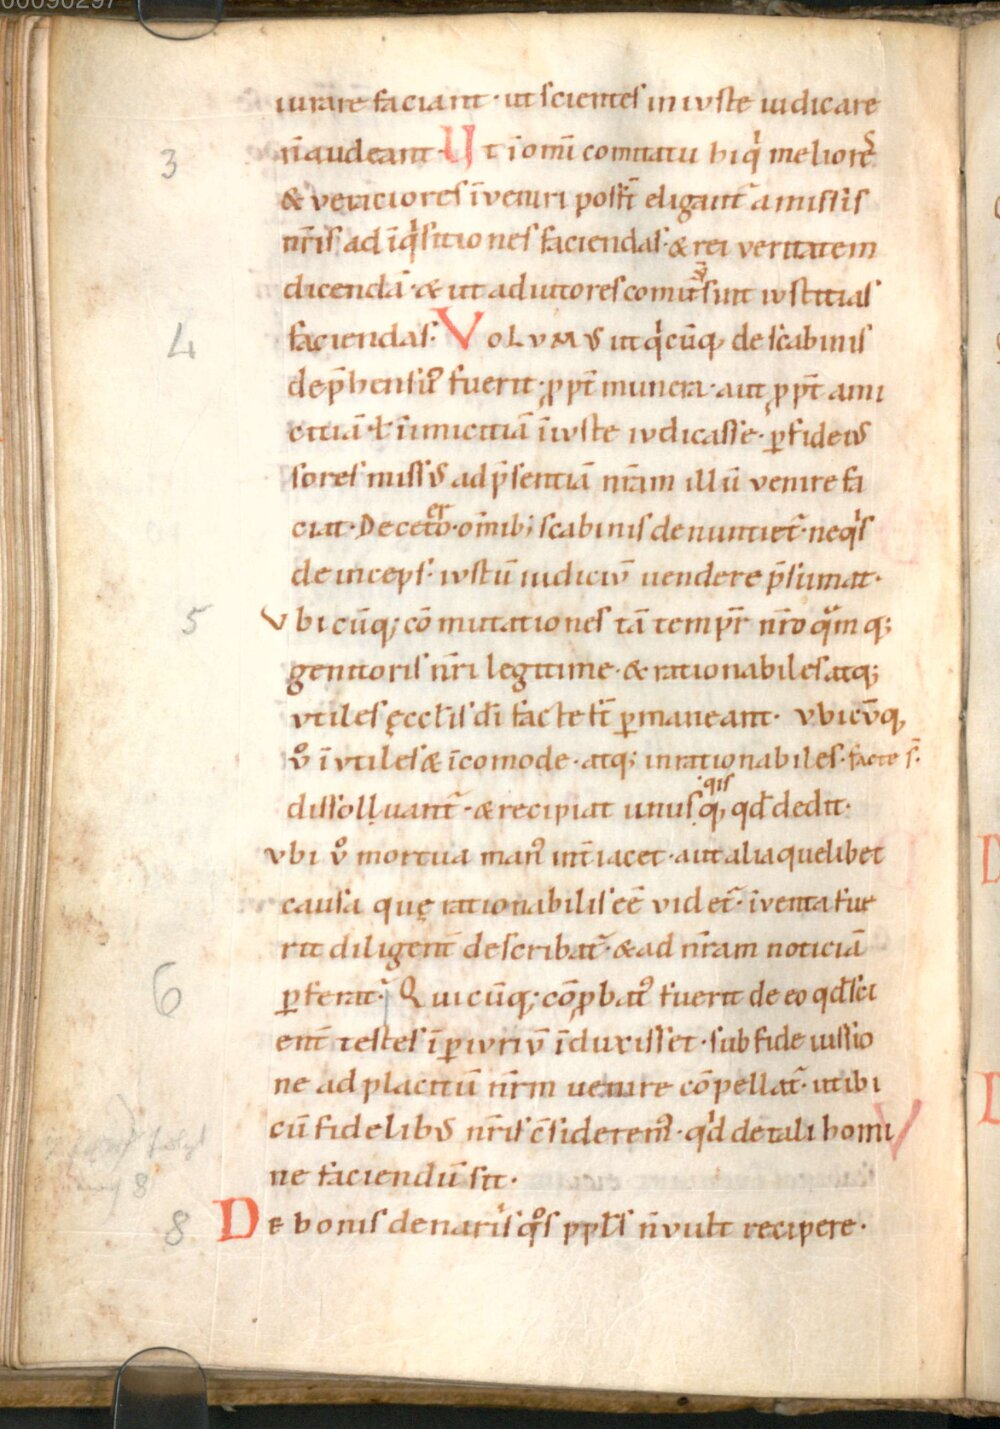 00090297
iurare faciant · ut scientes iniuste iudicare
3 n̄ audeant · Ut ī omī comitatu hi qͥ meliorēs
& veraciores īveniri poss̄t eligant᷑ a missis
nr̄is ad īqͥsitiones faciendas · & rei veritatem
dicendā · & ut adiutores comitū sint iustitias
4 faciendas · VOLVMVS ut qͥcūq; de scabinis
dep̄hensus fuerit · ꝓpt̄ munera · aut ꝓpt̄ ami
citiā · ł īnimicitiā īiuste iudicasse · ꝑ fideius
sores missus ad p̄sentiā nr̄am illū venire fa
ciat · De cetero · omībꝫ scabinis denuntiet᷑ · ne qͥs
deinceps · iustū iudiciū vendere p̄sumat ·
5 Vbicūq; cōmutationes tā temp̄r nr̄o qͣm q;
genitoris nr̄i legitime · & rationabiles atq;
utiles ęccl̄is dī facte st̄ ꝑmaneant · Vbicūq;
v̊ īutiles & īcomode · atq; inrationabiles · facte s̄ ·
dissolvant᷑ · & recipiat unusqͥsq; qđ dedit ·
Vbi v̊ mortua man᷒ int̄iacet · aut alia quelibet
causa quę rationabilis eē videt᷑ · īventa fue
rit diligent̄ describat᷑ · & ad nr̄am noticiā
6 ꝑferat᷑ · Quicūq; cōꝓbat᷒ fuerit de eo qđ sci
ent̄ testes ī ꝑiuriū īduxisset · sub fideiussio
ne ad placitū nr̄m venire cōpellat᷑ · ut ibi
cū fidelibus nr̄is c̄siderem᷒ · qͥd de tali homi
ne faciendū sit ·
8 De bonis denariis qͦs ppl̄s n̄ vult recipere ·